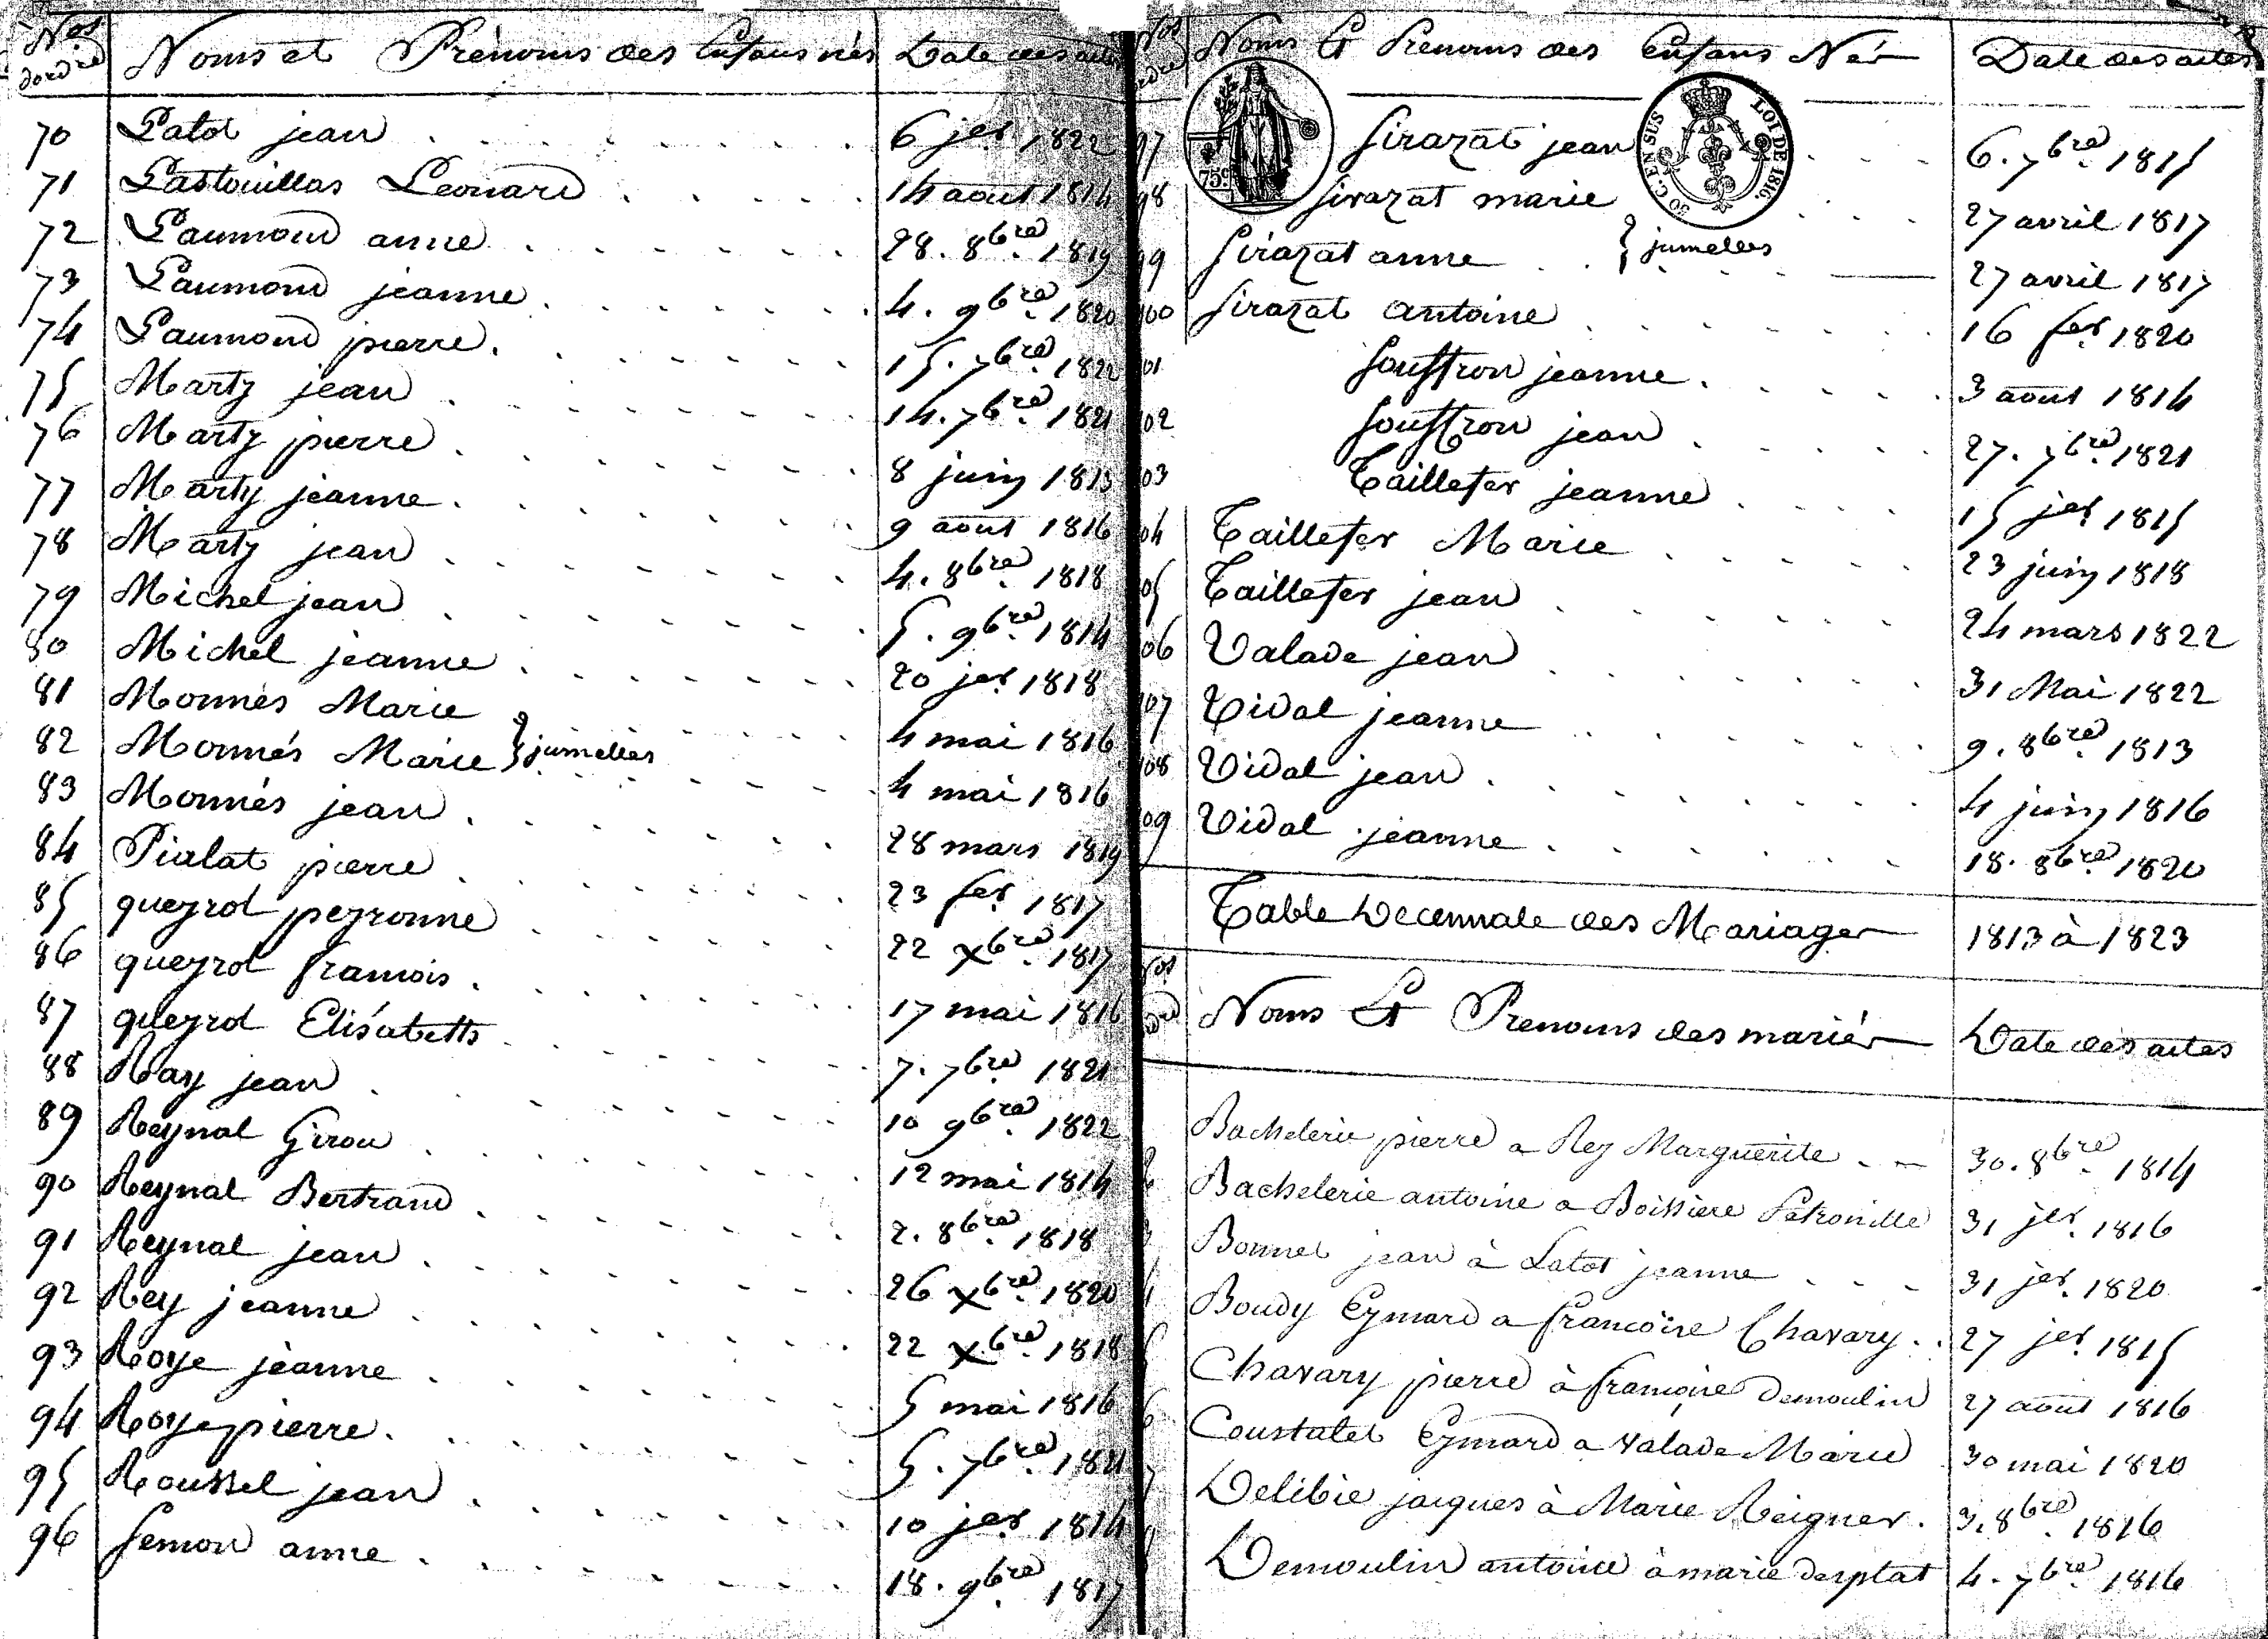 Nos d'ordre Noms et Prénoms des Enfans nés Date des actes
70 Latot jean 6 jer 1822
71 Lastouillas Leonard 14 aout 1814
72 Laumond anne 28. 8bre 1819
73 Laumond jeanne 4. 9bre 1820
74 Laumond pierre. 15. 7bre 1822
75 Marty jean 14. 7bre 1821
76 Marty pierre 8 juin 1813
77 Marty jeanne 9 aout 1816
78 Marty jean 4. 8bre 1818
79 Michel jean 5. 9bre 1814
80 Michel jeanne 20 jer 1818
81 Monnés Marie 4 mai 1816
82 Monnés Marie } jumelles 4 mai 1816
83 Monnés jean 28 mars 1819
84 Pialat pierre 23 fer 1817
85 queyrol peyronne 22 xbre 1817
86 queyrol francois 17 mai 1816
87 queyrol Elisabeth 7. 7bre 1821
88 Ray jean 10 9bre 1822
89 Reynal Girou 12 mai 1814
90 Reynal Bertrand 2. 8bre 1818
91 Reynal jean 26 xbre 1820
92 Rey jeanne 22 xbre 1818
93 Roye jeanne 5 mai 1816
94 Roye pierre. 5. 7bre 1821
95 Roussel jean 10 jer 1814
96 Semon anne 18. 9bre 1817
Nos d'ordre Noms Et Prenoms des Enfans Nés Date des actes
75c
30 C. EN SUS LOI DE 1816.
97 Sirazat jean 6. 7bre 1815
98 Sirazat marie 27 avril 1817
99 Sirazat anne } jumelles 27 avril 1817
100 Sirazat antoine 16 fer 1820
101 Souffron jeanne 3 aout 1814
102 Souffron jean 27. 7bre 1821
103 Taillefer jeanne 15 jer 1815
104 Taillefer Marie 23 juin 1818
105 Taillefer jean 24 mars 1822
106 Valade jean 31 Mai 1822
107 Vidal jeanne 9. 8bre 1813
108 Vidal jean 4 juin 1816
109 Vidal jeanne 18. 8bre 1820
Table Decennale des Mariages 1813 à 1823
Nos d'ordre Noms Et Prenoms des mariés Date des actes
Bachelerie pierre a Rey Marguerite 30. 8bre 1814
2 Bachelerie antoine a Boissiere Petronille 31 jer 1816
3 Bonnet jean à Latot jeanne 31 jer 1820
4 Boudy Eymard a francoise Chavary 27 jer 1815
5 Chavary pierre à francoise Demoulin 27 aout 1816
6 Coustalet Eymard a Valade Marie 30 mai 1820
7 Delibie jacques à Marie Reigner. 3. 8bre 1816
8 Demoulin antoine à marie desplat 4. 7bre 1816